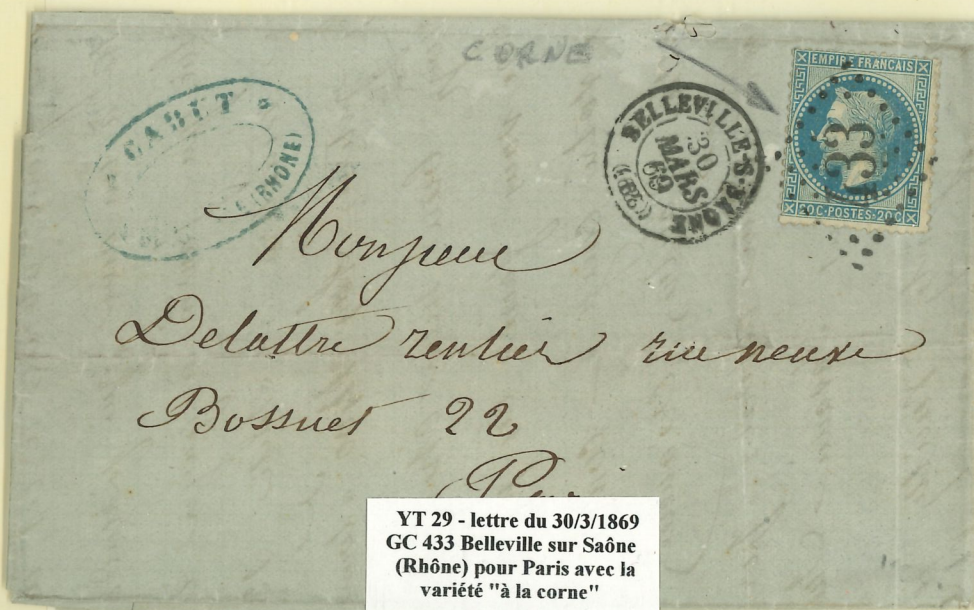 CORNE
CABET
(RHÔNE)
BELLEVILLE-S-SAÔNE
30
MARS
69
EMPIRE FRANÇAIS
433
20C·POSTES·20C
Monsieur
Delattre rentier rue neuve
Bossuet 22
YT 29 - lettre du 30/3/1869
GC 433 Belleville sur Saône
(Rhône) pour Paris avec la
variété "à la corne"